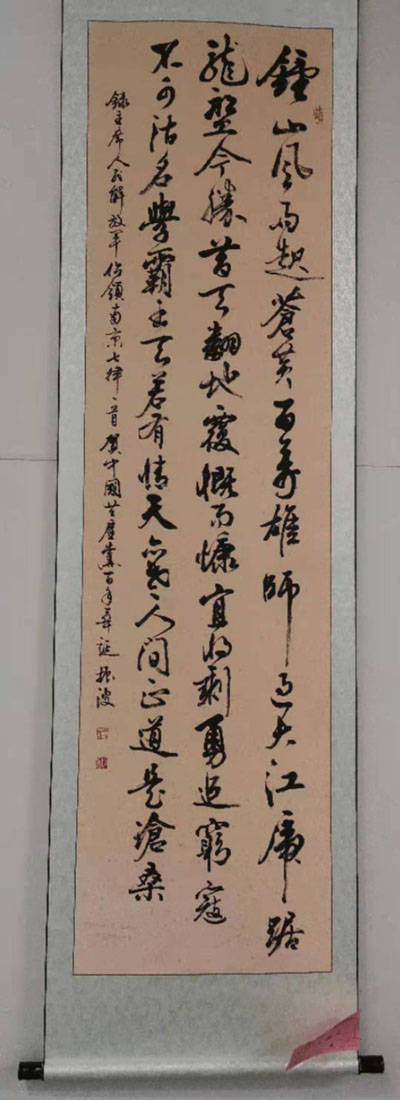 鍾山風雨起蒼黃百萬雄師過大江虎踞
龍盤今勝昔天翻地覆慨而慷宜將剩勇追窮寇
不可沽名學霸王天若有情天亦老人間正道是滄桑
錄主席人民解放軍佔領南京七律一首賀中國共產黨百年華誕振波